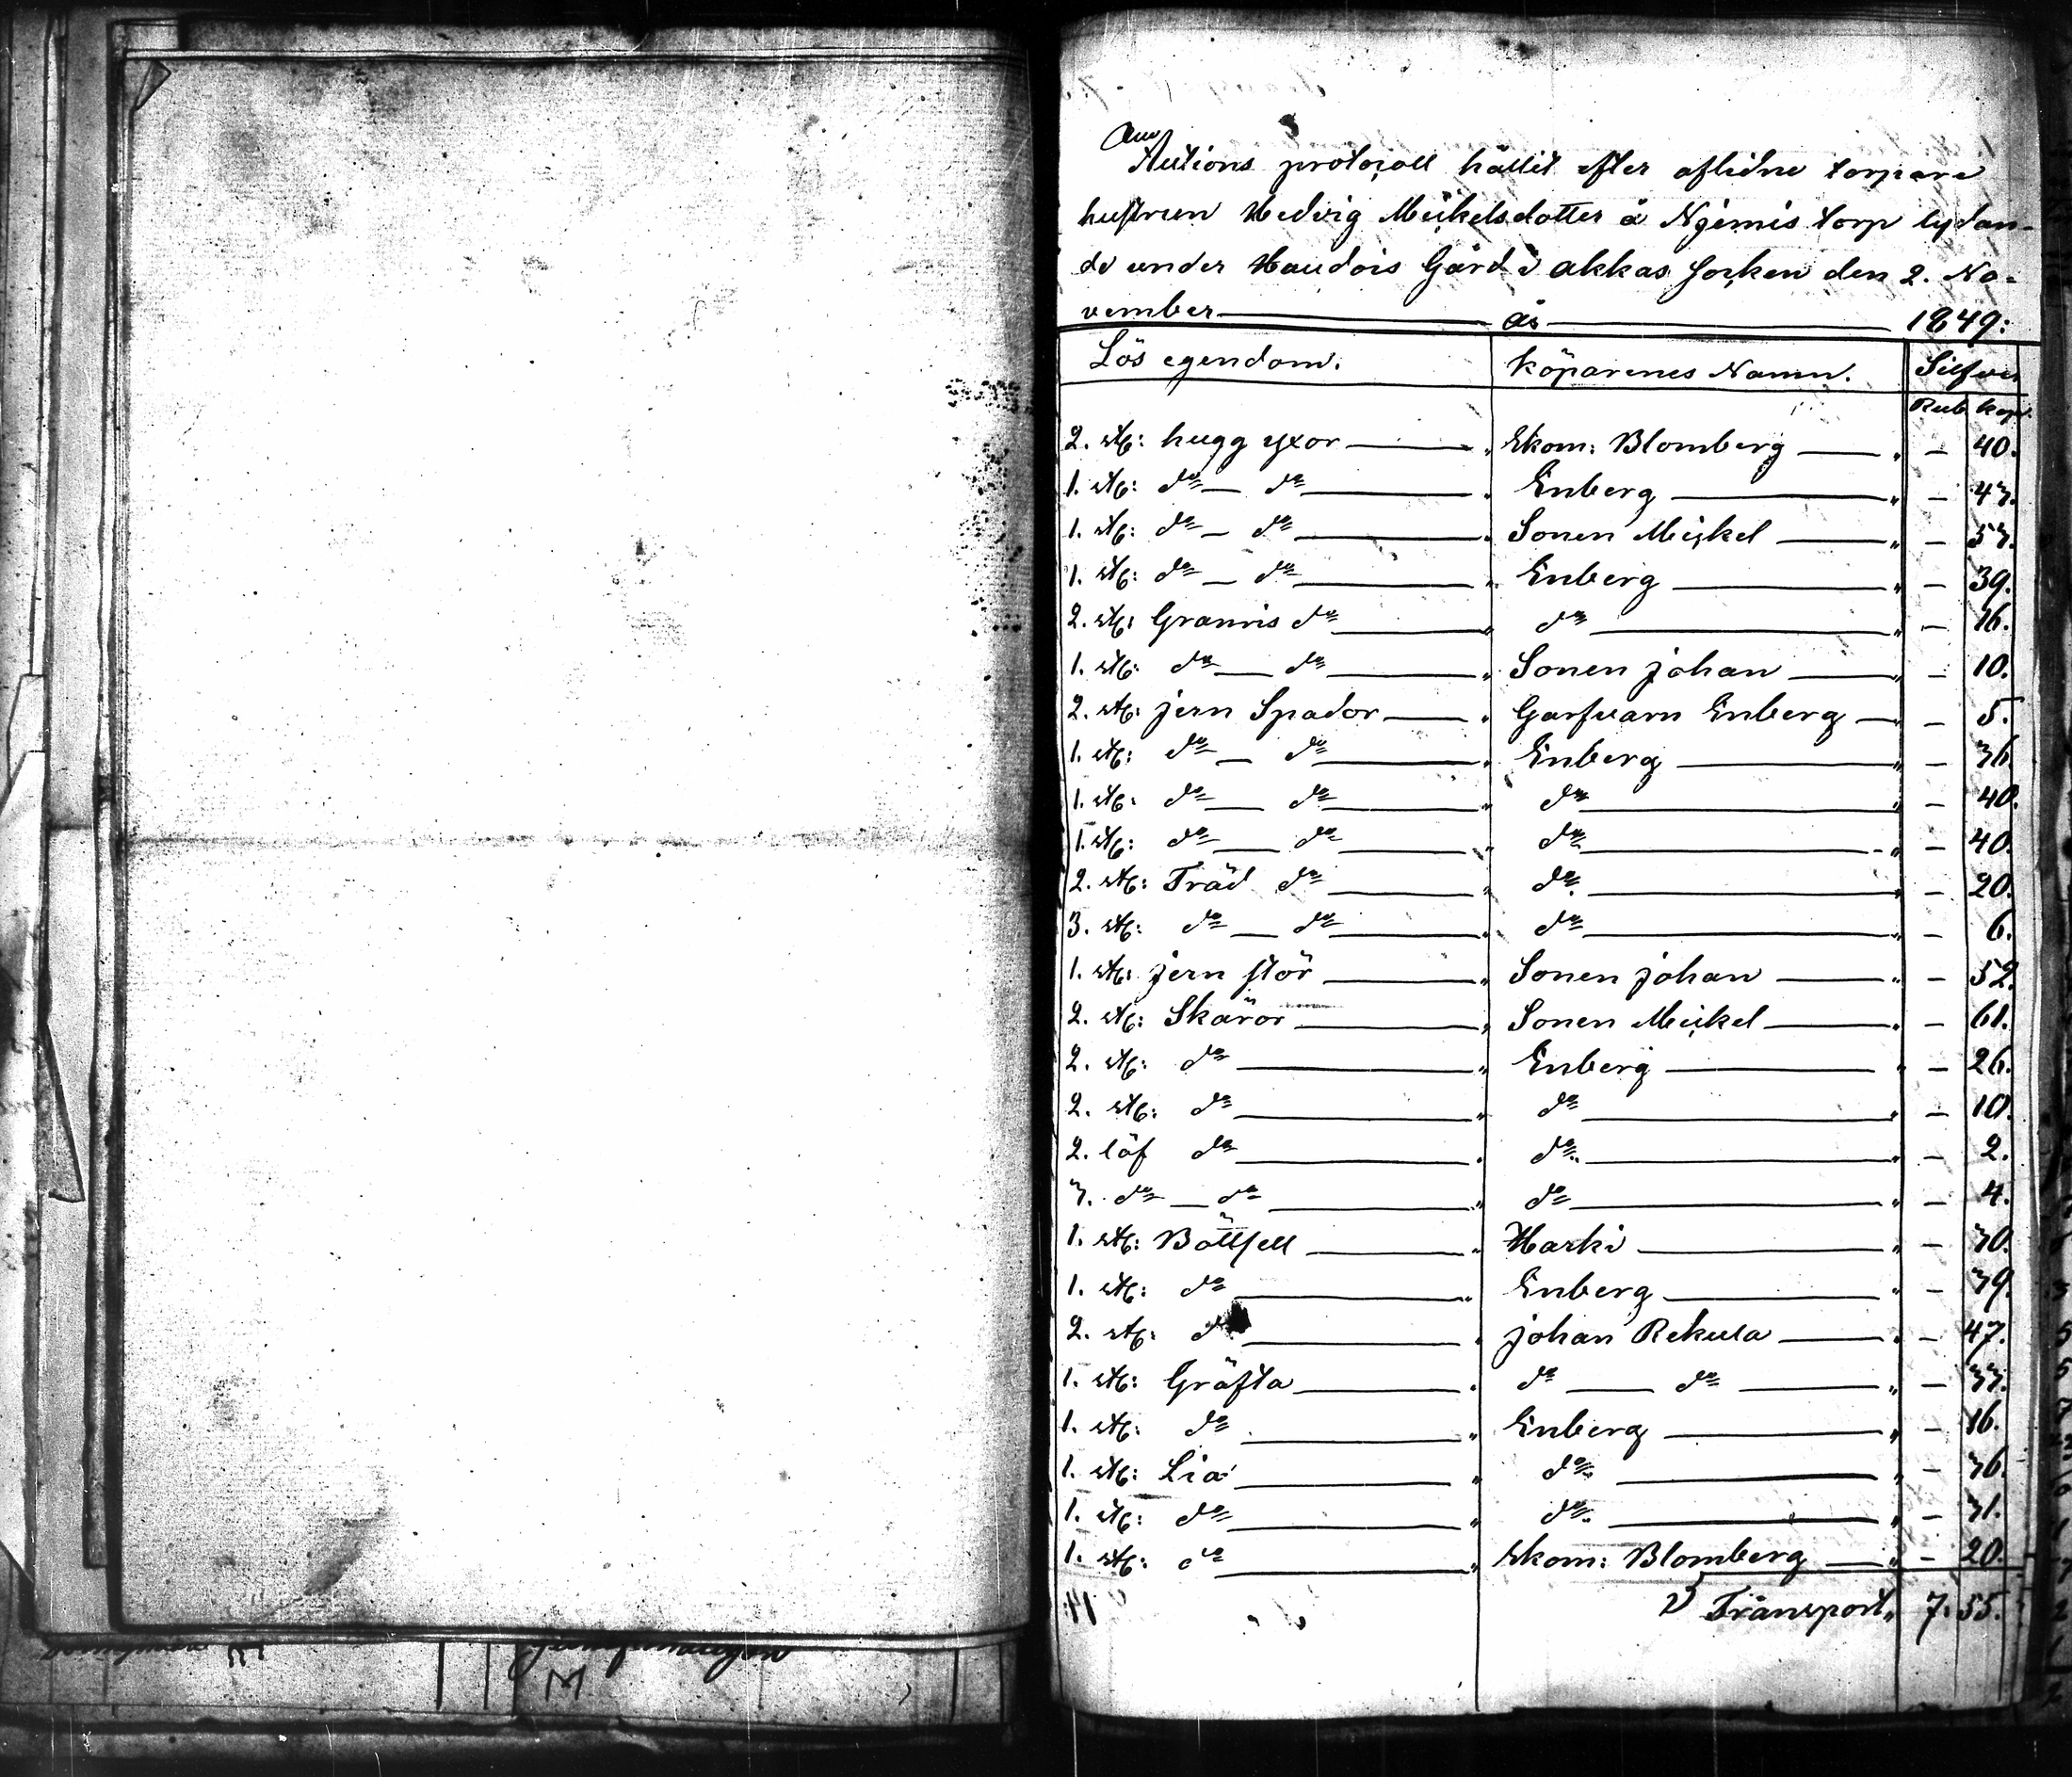 Auctions protocoll hållit efter aflidne torpare
hustrun Hedvig Meickelsdotter å Nyemis torp lydan-
de under Haudois Gård i akkas Socken den 2. No-
vember år 1849:
Lös egendom. Köparenes Namn. Silfver
Rub kop
2. st: hugg yxor " Ekom: Blomberg " – 40.
1. st: do do " Enberg " – 47.
1. st: do do " Sonen Meickel " – 57.
1. st: do do " Enberg " – 39.
2. st: Granris do " do " – 16.
1. st: do do " Sonen johan " – 10.
2. st: jern Spador " Garfvarn Enberg – 5.
1. st: do do " Enberg " – 36
1. st: do do " do " – 40.
1. st: do do " do " – 40.
2. st: Träd do " do " – 20.
3. st: do do " do " – 6.
1. st: jern stör " Sonen johan " – 52.
2. st: Skäror " Sonen Meickel " – 61.
2. st: do " Enberg " – 26.
2. st: do " do " – 10.
2. löf do " do " – 2.
7. do do " do " – 4.
1. st: Böllsell " Harki " – 70.
1. st: do " Enberg " – 39.
2. st: do " johan Rekula " – 47.
1. st: Gräfta " do do " – 37.
1. st: do " Enberg " – 16.
1. st: Lia " do " – 36.
1. st: do " do " – 31.
1. st: do " Ekom: Blomberg " – 20.
Transport " 7. 55.